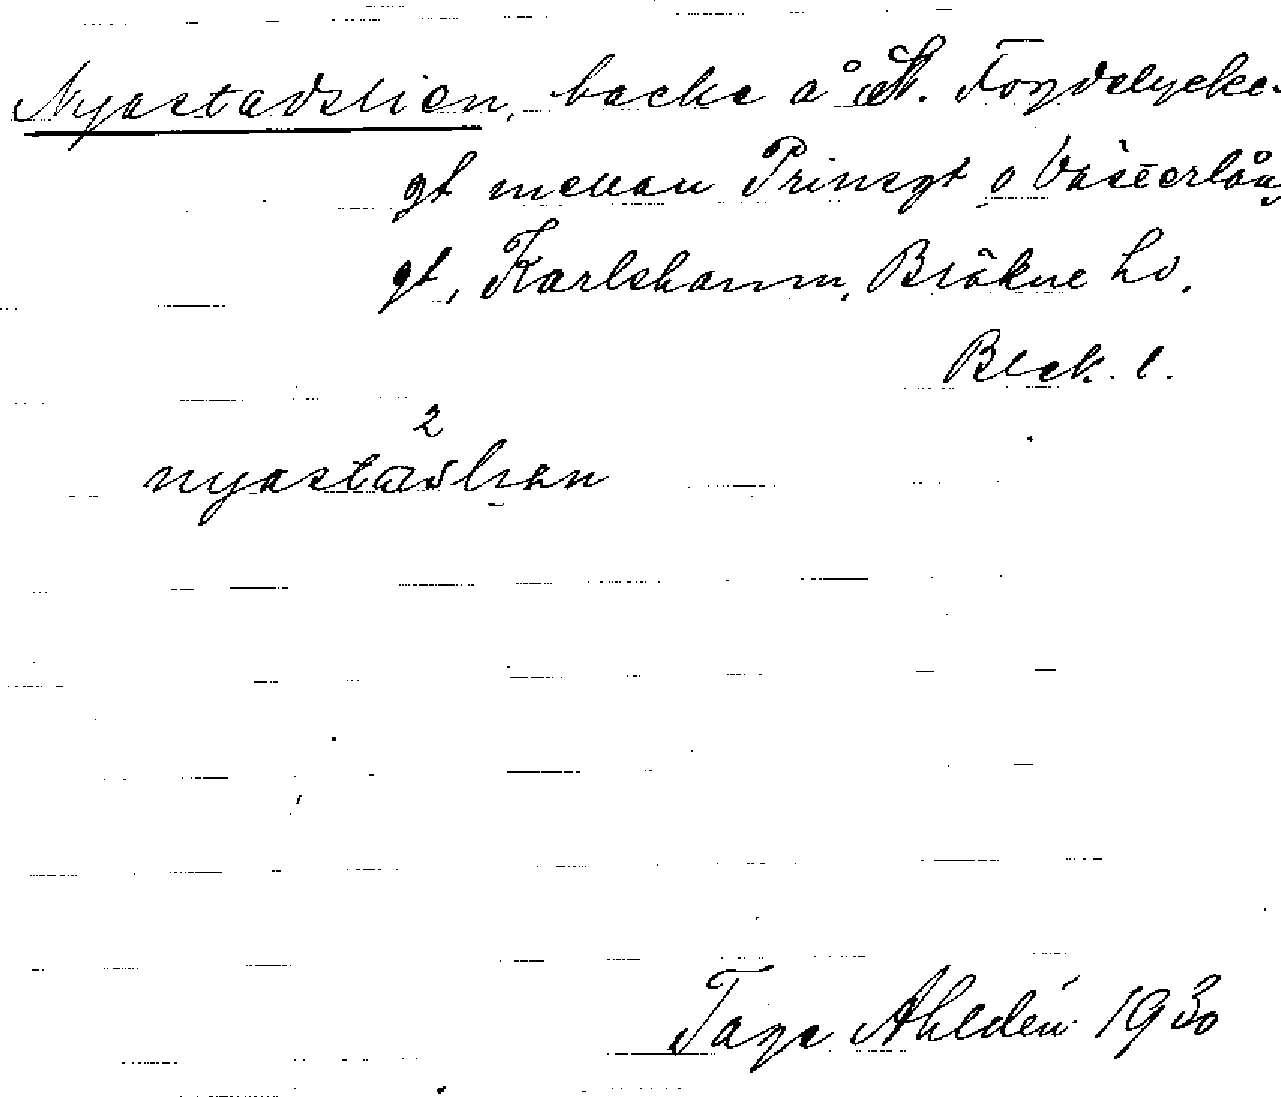 Nyastadslien, backe å St. Fogdelycke-
gt mellan Prinsgt o Västerlång
gt, Karlshamn, Bräkne hd.
Blek. l.
2
nyastadslian
Tage Ahldén 1930